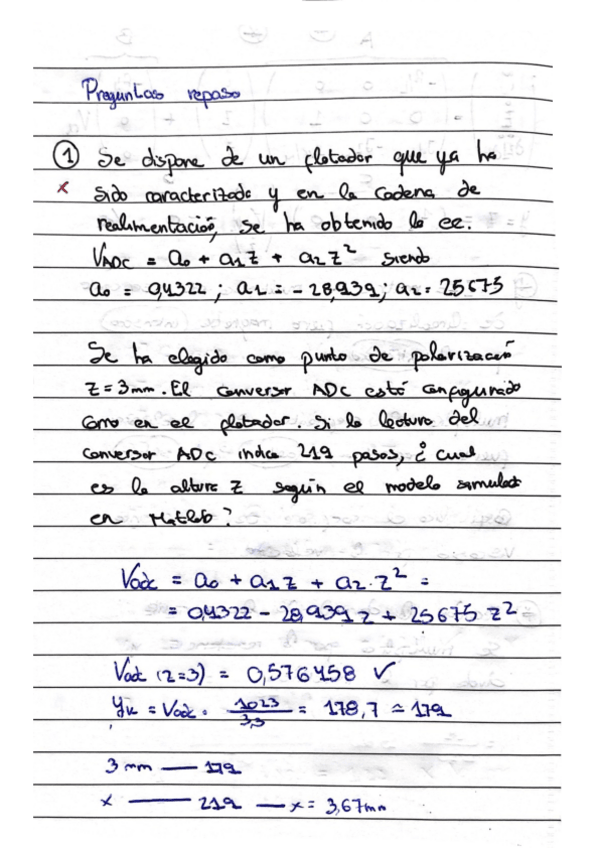 Preguntas repaso
① Se dispone de un flotador que ya ha
x sido caracterizado y en la cadena de
realimentación, se ha obtenido la ec.
VADC = a0 + a1z + a2z² siendo
a0 = 0,4322 ; a1 = -28,939 ; a2 = 25675
Se ha elegido como punto de polarización
z = 3mm. El conversor ADC está configurado
como en el flotador. Si la lectura del
conversor ADC indica 219 pasos, ¿cual
es la altura z según el modelo simulado
en Matlab?
Vadc = a0 + a1z + a2·z² =
= 0,4322 - 28,939z + 25675 z²
Vadc (z=3) = 0,576458 ✓
yk = Vadc · 1023/3,3 = 178,7 ≃ 179
3 mm — 179
x — 219 — x = 3,67mm